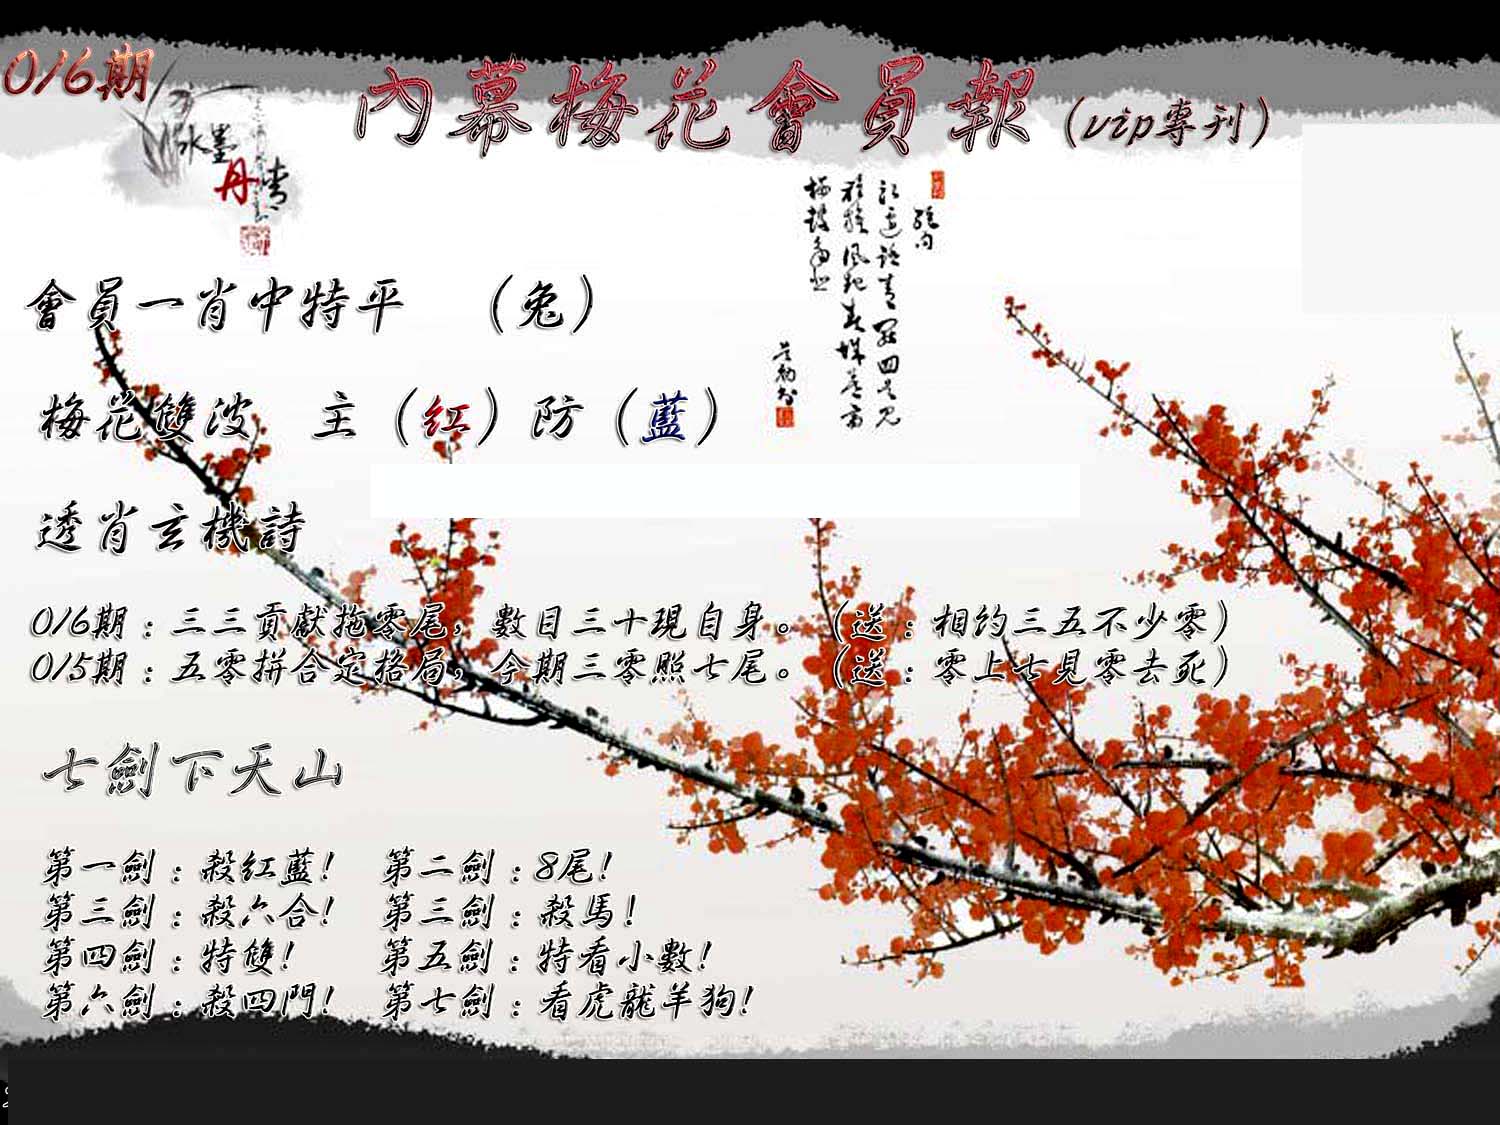 016期
內幕梅花會員報（vip專刊）
水墨
丹青
絕句
會員一肖中特平　（兔）
梅花雙波　主（紅）防（藍）
透肖玄機詩
016期：三三貢獻拖零尾，數目三十現自身。（送：相約三五不少零）
015期：五零拼合定格局，今期三零照七尾。（送：零上七見零去死）
七劍下天山
第一劍：殺紅藍！　第二劍：8尾！
第三劍：殺六合！　第三劍：殺馬！
第四劍：特雙！　第五劍：特看小數！
第六劍：殺四門！　第七劍：看虎龍羊狗！